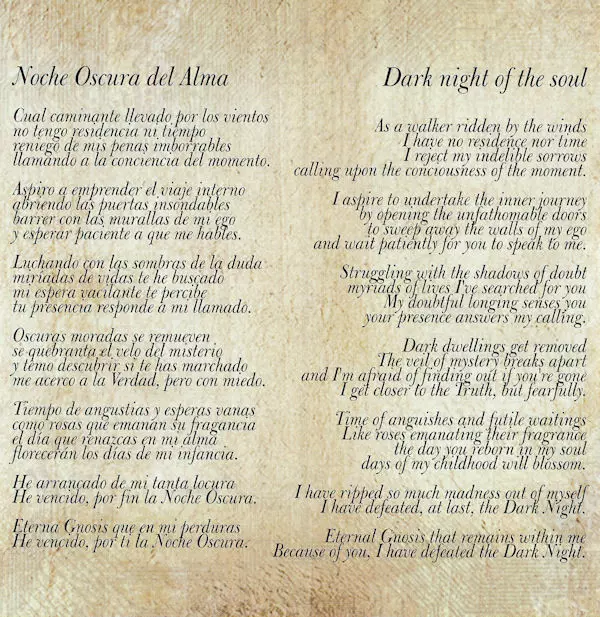 Noche Oscura del Alma
Cual caminante llevado por los vientos
no tengo residencia ni tiempo
reniego de mis penas imborrables
llamando a la conciencia del momento.
Aspiro a emprender el viaje interno
abriendo las puertas insondables
barrer con las murallas de mi ego
y esperar paciente a que me hables.
Luchando con las sombras de la duda
miríadas de vidas te he buscado
mi espera vacilante te percibe
tu presencia responde a mi llamado.
Oscuras moradas se remueven
se quebranta el velo del misterio
y temo descubrir si te has marchado
me acerco a la Verdad, pero con miedo.
Tiempo de angustias y esperas vanas
como rosas que emanan su fragancia
el día que renazcas en mi alma
florecerán los días de mi infancia.
He arrancado de mi tanta locura
He vencido, por fin la Noche Oscura.
Eterna Gnosis que en mi perduras
He vencido, por ti la Noche Oscura.
Dark night of the soul
As a walker ridden by the winds
I have no residence nor time
I reject my indelible sorrows
calling upon the conciousness of the moment.
I aspire to undertake the inner journey
by opening the unfathomable doors
to sweep away the walls of my ego
and wait patiently for you to speak to me.
Struggling with the shadows of doubt
myriads of lives I've searched for you
My doubtful longing senses you
your presence answers my calling.
Dark dwellings get removed
The veil of mystery breaks apart
and I'm afraid of finding out if you're gone
I get closer to the Truth, but fearfully.
Time of anguishes and futile waitings
Like roses emanating their fragrance
the day you reborn in my soul
days of my childhood will blossom.
I have ripped so much madness out of myself
I have defeated, at last, the Dark Night.
Eternal Gnosis that remains within me
Because of you, I have defeated the Dark Night.